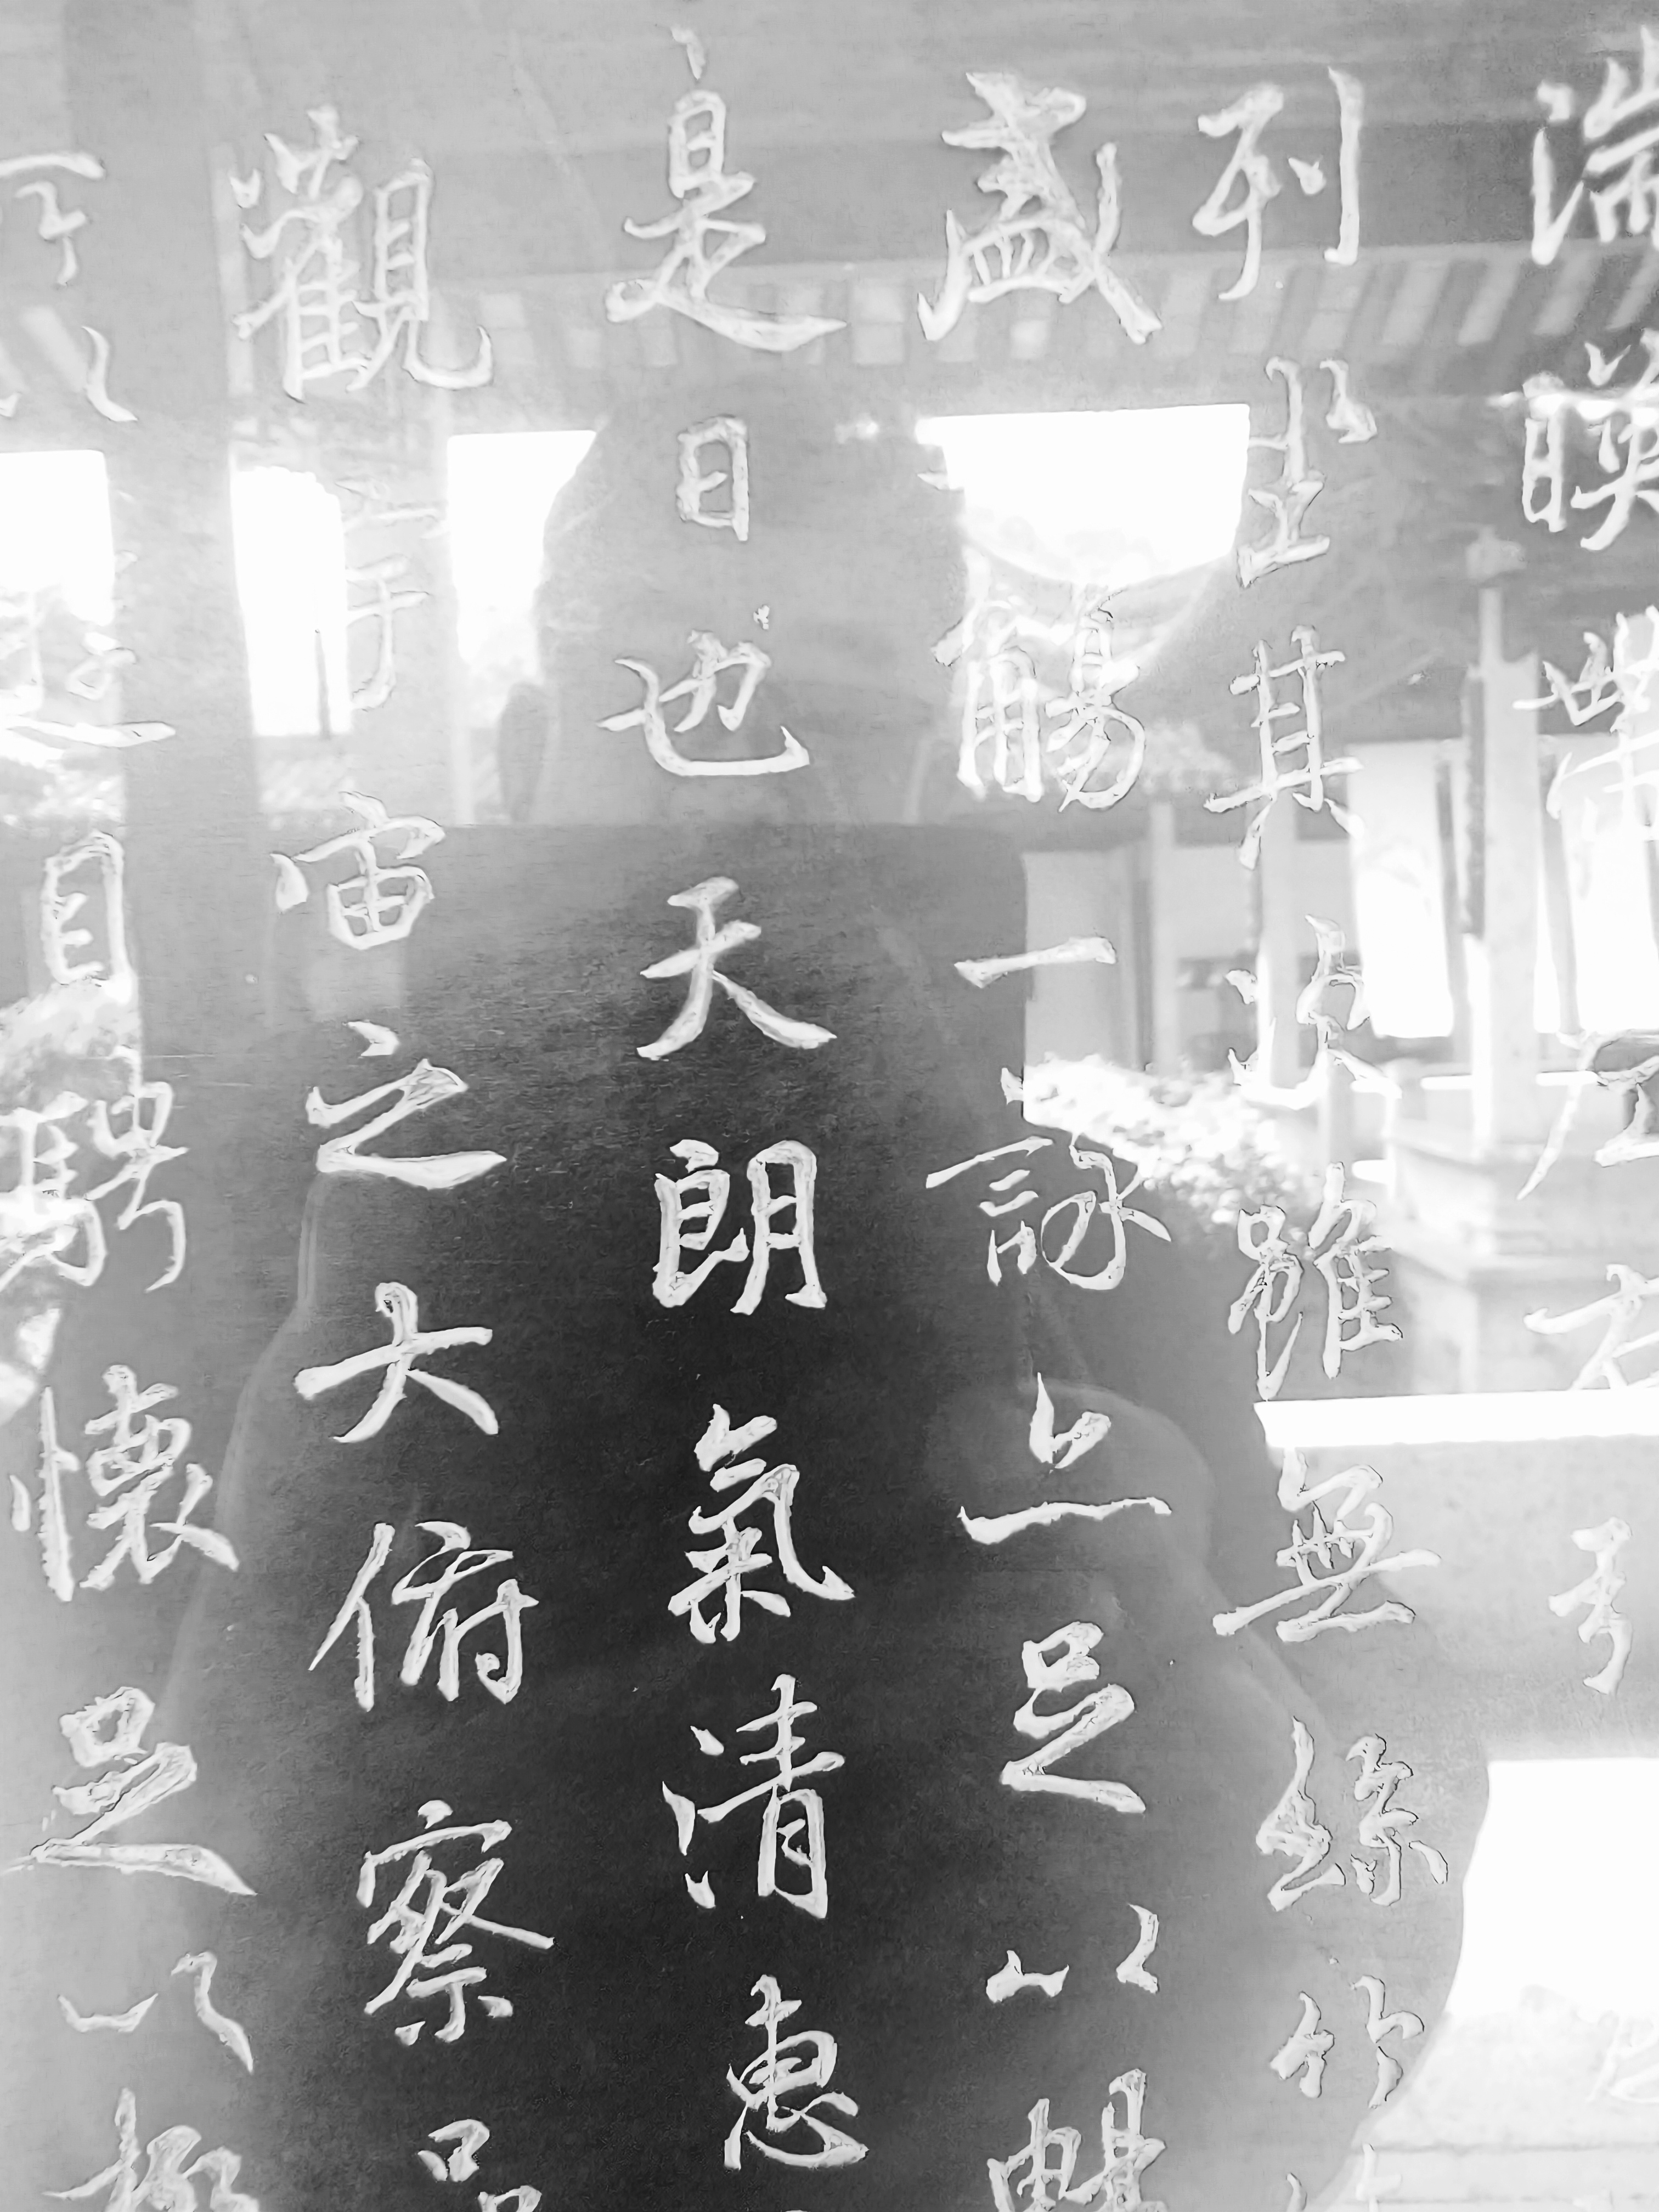 湍暎帶左右引
列坐其次雖無絲竹
盛一觴一詠亦足以暢
是日也天朗氣清惠
觀宇宙之大俯察品
所以遊目騁懷足以極